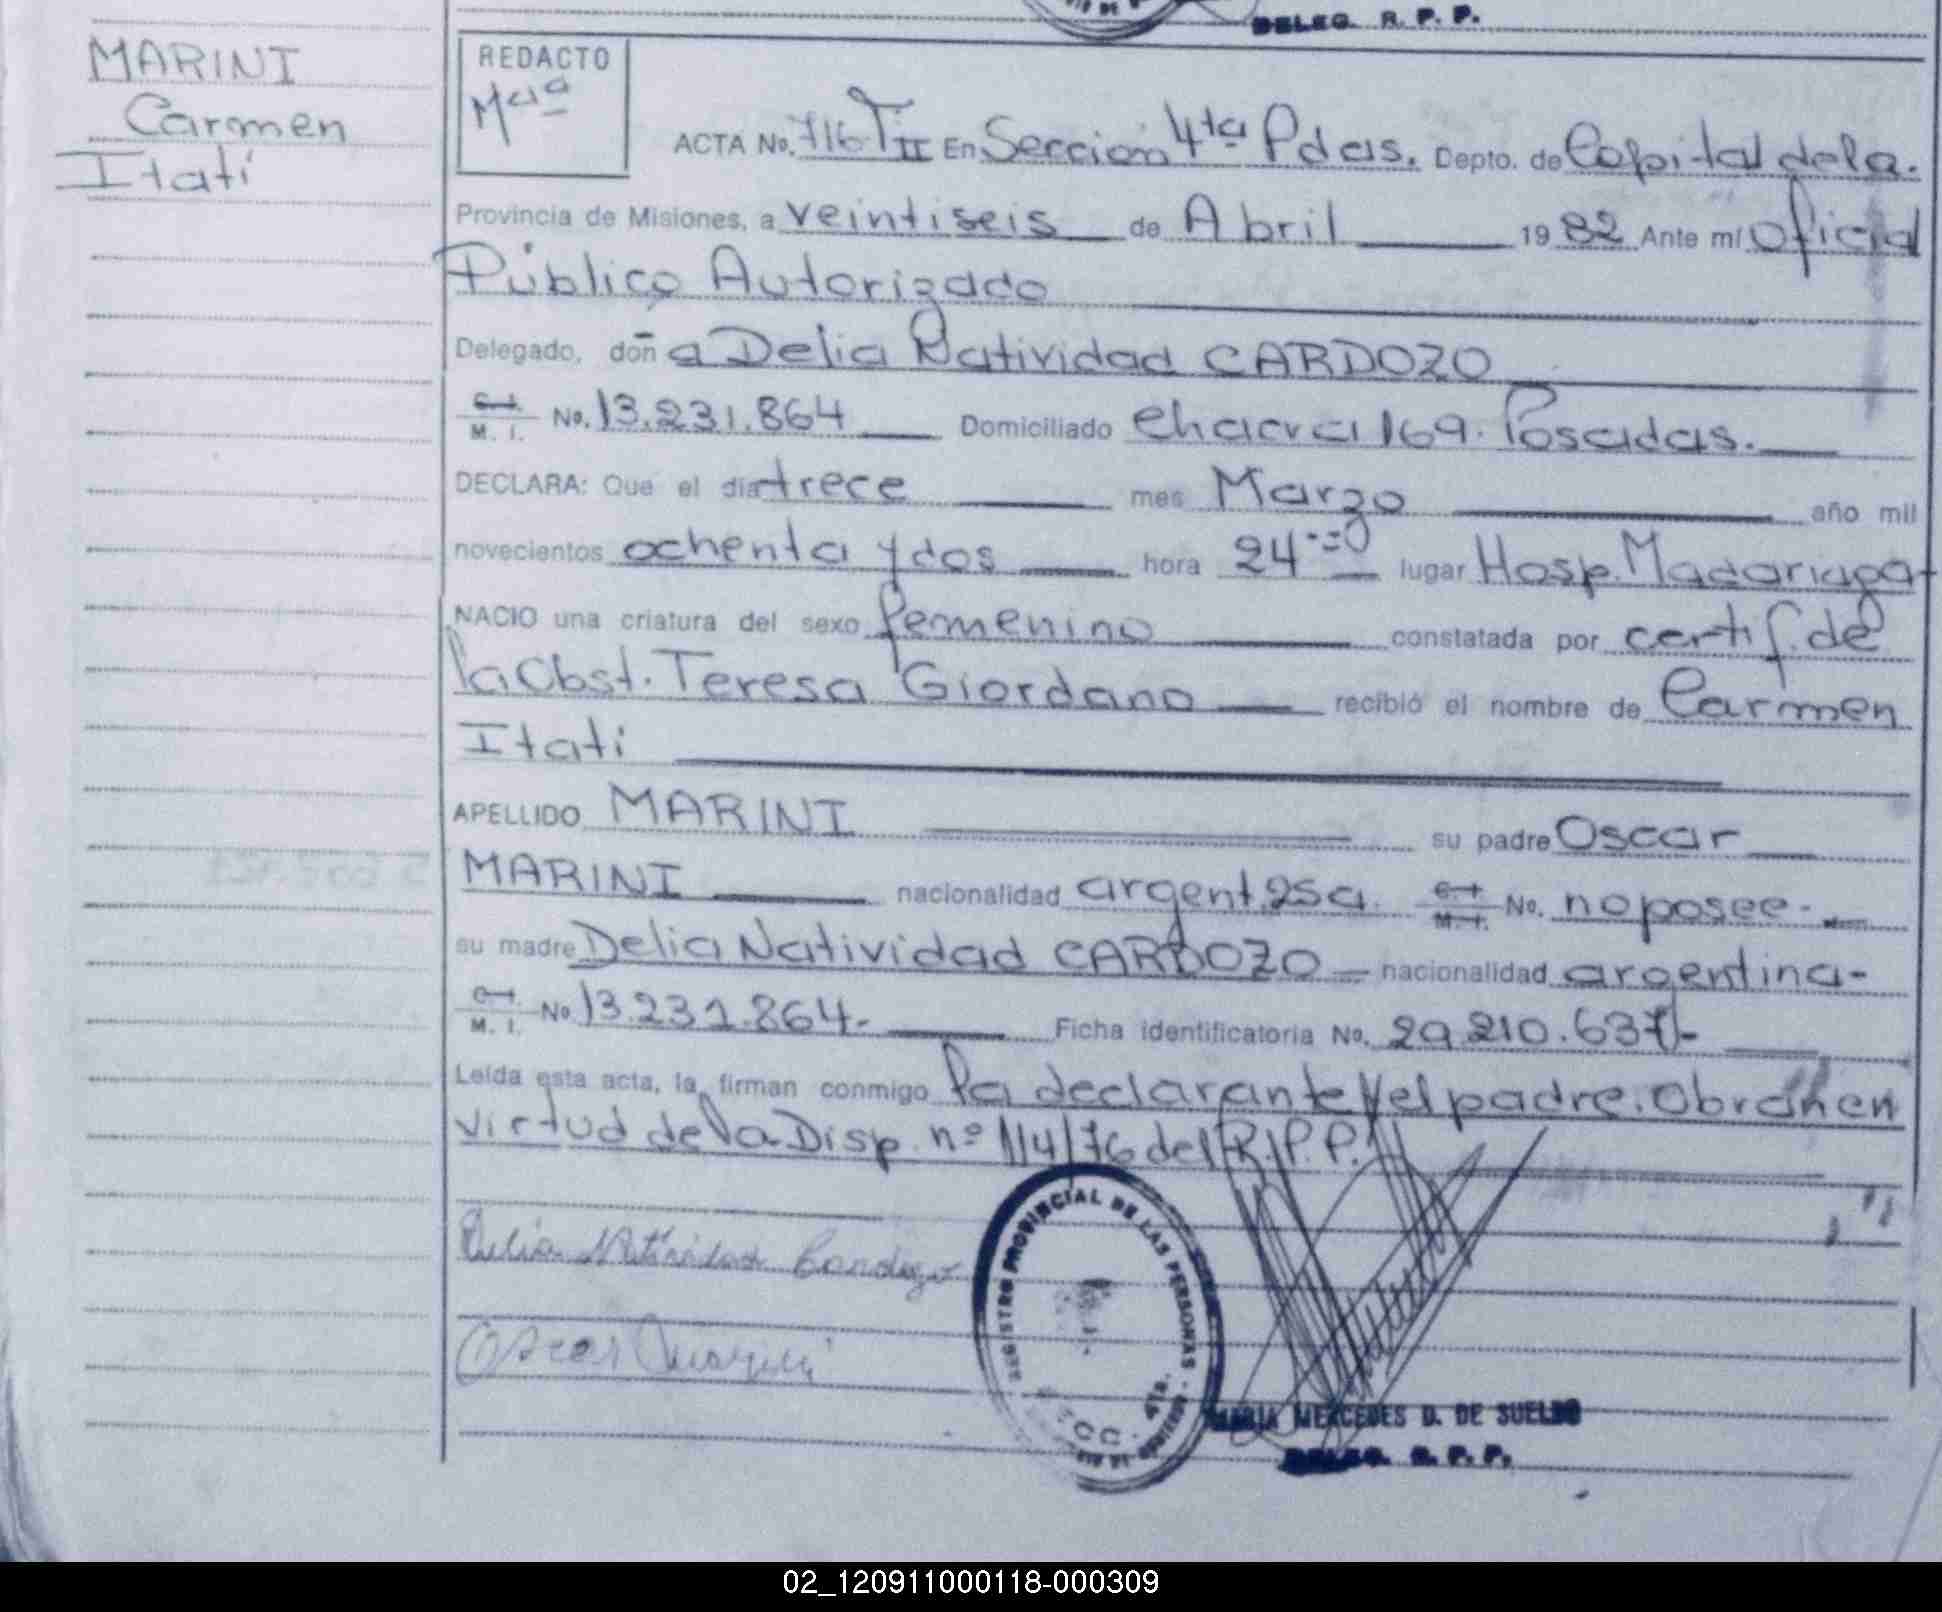 DELEG. R. P. P.
MARINI
Carmen
Itatí
REDACTO
Mª
ACTA No. 716 T II En Sección 4ta Pdas. Depto. de Capital de la.
Provincia de Misiones, a veintiseis de Abril 1982 Ante mí Oficial
Público Autorizado
Delegado, doña Delia Natividad CARDOZO
C. I. M. I. No. 13.231.864 Domiciliado Chacra 169. Posadas.
DECLARA: Que el día trece mes Marzo año mil
novecientos ochenta y dos hora 24 lugar Hosp. Madariaga
NACIO una criatura del sexo femenino constatada por certif. de
la Obst. Teresa Giordano recibió el nombre de Carmen
Itatí
APELLIDO MARINI su padre Oscar
MARINI nacionalidad argent. 25a. C. I. M. I. No. no posee.
su madre Delia Natividad CARDOZO nacionalidad argentina-
C. I. M. I. No 13.231.864.- Ficha identificatoria No. 29.210.637/-
Leída esta acta, la firman conmigo la declarante y el padre. Obran en
virtud de la Disp. nº 114/76 del R.P.P.
Delia Natividad Cardozo
Oscar Marini
REGISTRO PROVINCIAL DE LAS PERSONAS
SECC. 4TA.
MARIA MERCEDES D. DE SUELDO
DELEG. R. P. P.
02_120911000118-000309